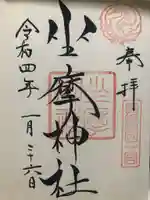 奉拝
坐摩神社
令和四年 一月二十六日